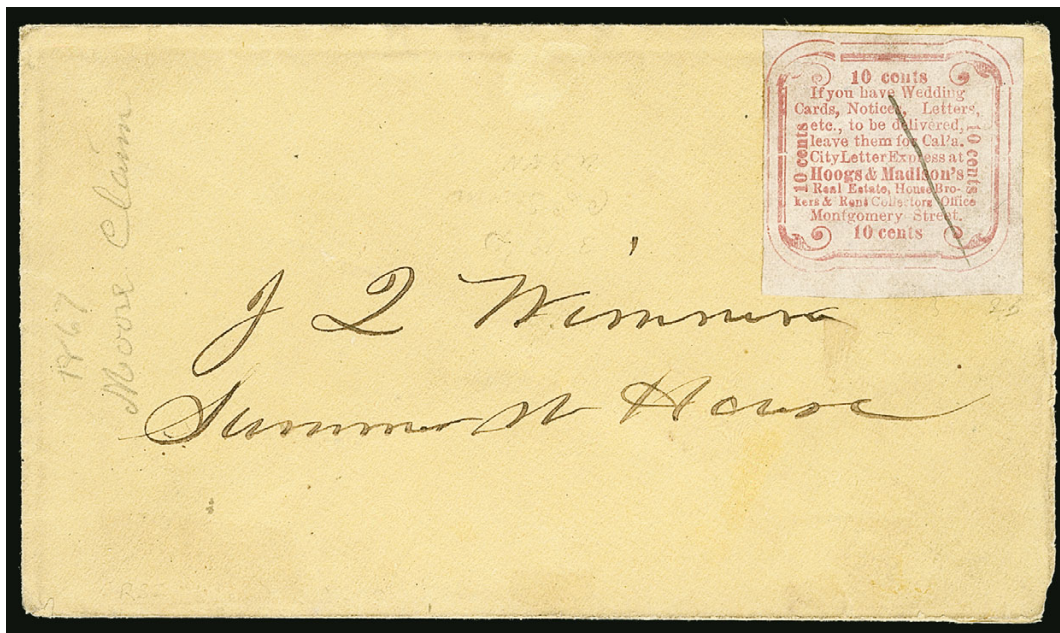 10 cents
If you have Wedding
Cards, Notices, Letters,
etc., to be delivered,
leave them for Cal'a.
City Letter Express at
Hoogs & Madison's
Real Estate, House Bro-
kers & Rent Collectors Office
Montgomery Street.
10 cents
10 cents
10 cents
J Q
House
1867
Moore Claim